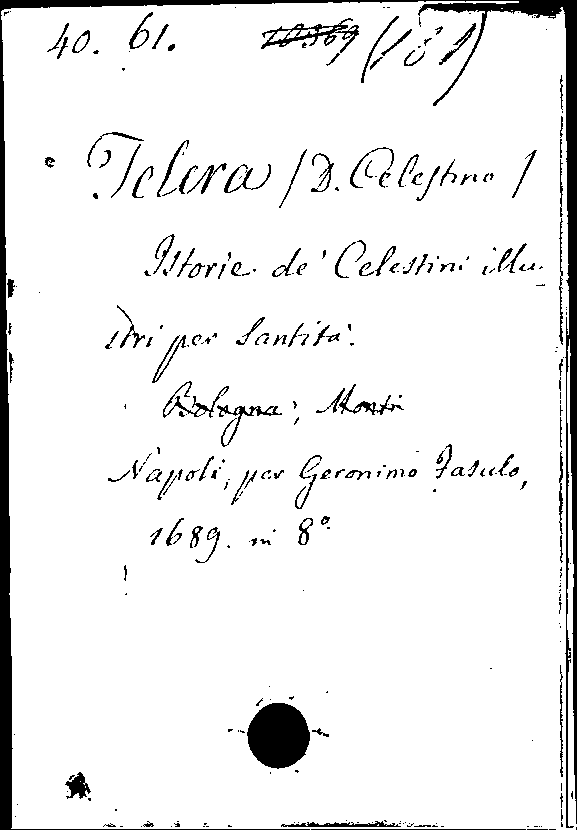 40. 61. 10369 (181)
Telera (D. Celestino)
Istorie de' Celestini illu-
stri per Santita'.
Bologna, Monti
Napoli, per Geronimo Fasulo,
1689. in 8°